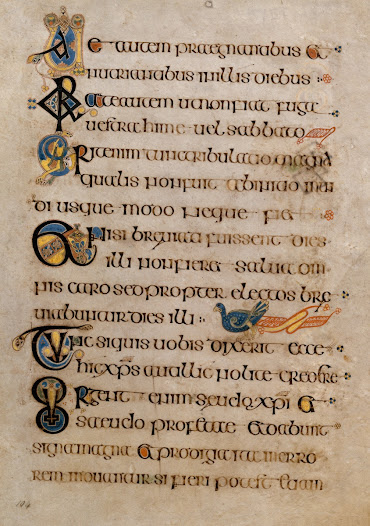 Uae autem praegnantibus et
nutrientibus in illis diebus
Orate autem ut non fiat fuga
uestra hieme uel sabbato
Erit enim tunc tribulatio magna
qualis non fuit ab initio mun
di usque modo neque fiet
Et nisi breuiati fuissent dies
illi non fieret salua om
nis caro sed propter electos bre
uiabuntur dies illi
Tunc si quis uobis dixerit ecce
hic xps aut illic nolite credere
Surgent enim seudo xpi et
seudo profetae et dabunt
signa magna et prodigia ita in erro
rem inducantur si fieri potest etiam
104